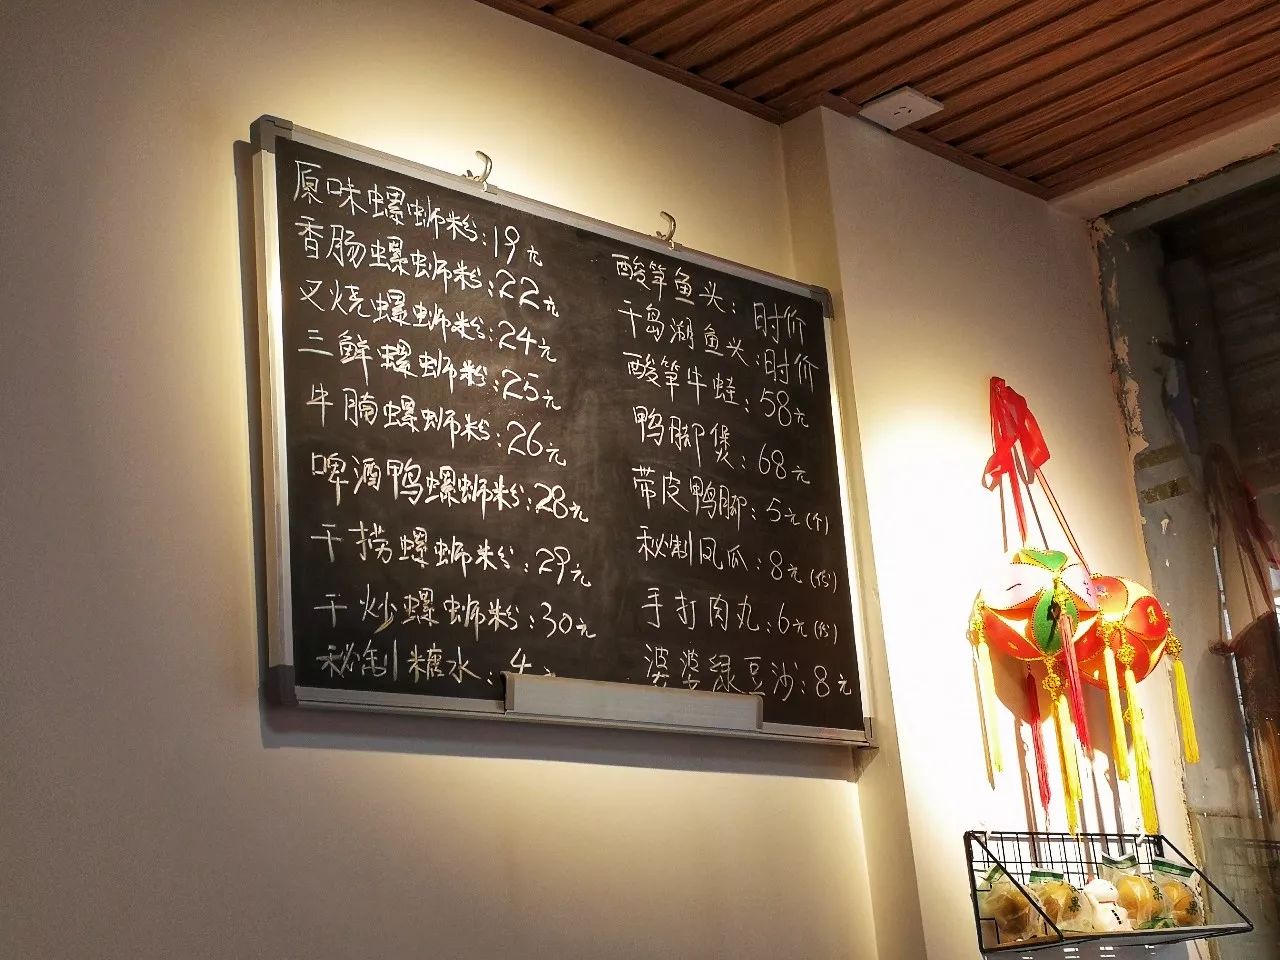 原味螺蛳粉:19元
香肠螺蛳粉:22元
叉烧螺蛳粉:24元
三鲜螺蛳粉:25元
牛腩螺蛳粉:26元
啤酒鸭螺蛳粉:28元
干捞螺蛳粉:29元
干炒螺蛳粉:30元
秘制糖水:4元
酸笋鱼头:时价
千岛湖鱼头:时价
酸笋牛蛙:58元
鸭脚煲:68元
带皮鸭脚:5元(个)
秘制凤爪:8元(份)
手打肉丸:6元(份)
婆婆绿豆沙:8元
果
果